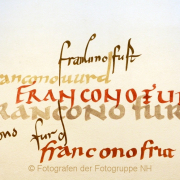 franconofurt
franconouurd
FRANCONOFUR
FRANCONOFUR
ono furd
francono frut
© Fotografen der Fotogruppe NH